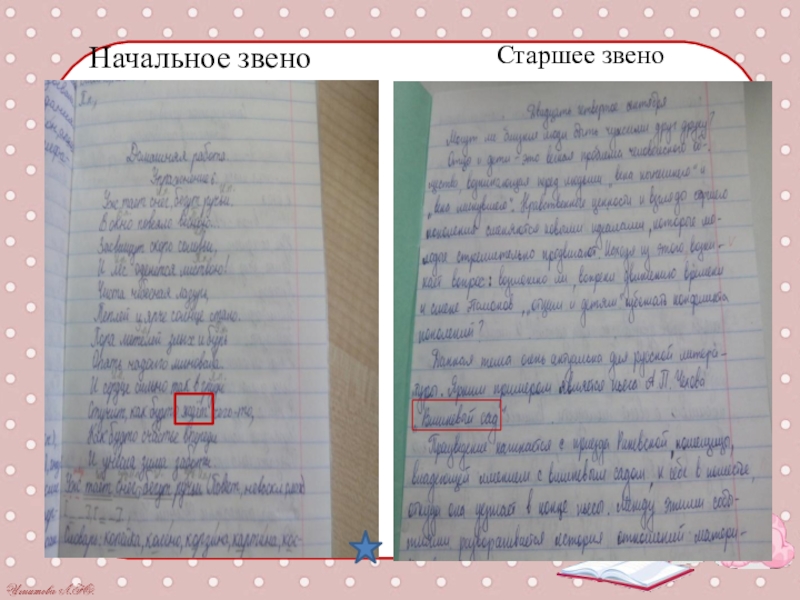 Начальное звено
Старшее звено
Домашняя работа
Упражнение
Уже тает снег, бегут ручьи,
В окно повеяло весною
Засвищут скоро соловьи,
И лес оденется листвою!
Чиста небесная лазурь,
Теплей и ярче солнце стало.
Пора метелей злых и бурь
Опять надолго миновала.
И сердце сильно так в груди
Стучит, как будто ждёт чего-то,
Как будто счастье впереди
И унесла зима заботы.
Уже тает снег, бегут ручьи
Словарь: копейка, калина, корзина, картина, кос-
Двадцать четвёртое сентября
Могут ли близкие люди быть чужими друг другу?
Отцы и дети - это вечная проблема человеческого об-
щества, возникающая перед людьми „века нынешнего" и
„века минувшего". Нравственные ценности и взгляды старшего
поколения сменяются новыми идеалами, которые мо-
лодые стремительно продвигают. Исходя из этого возни-
кает вопрос: возможно ли, вопреки движению времени
и смене „отцам и детям" избежать конфликта
поколений?
Данная тема очень актуальна для русской литера-
туры. Ярким примером является пьеса А.П. Чехова
"Вишневый сад".
начинается с приезда Раневской, помещицы,
владеющей имением с вишневым садом, к себе в поместье,
откуда она уезжает в конце пьесы. Между этими собы-
тиями разворачивается история отношений матери-
Игнатова Л.Ю.